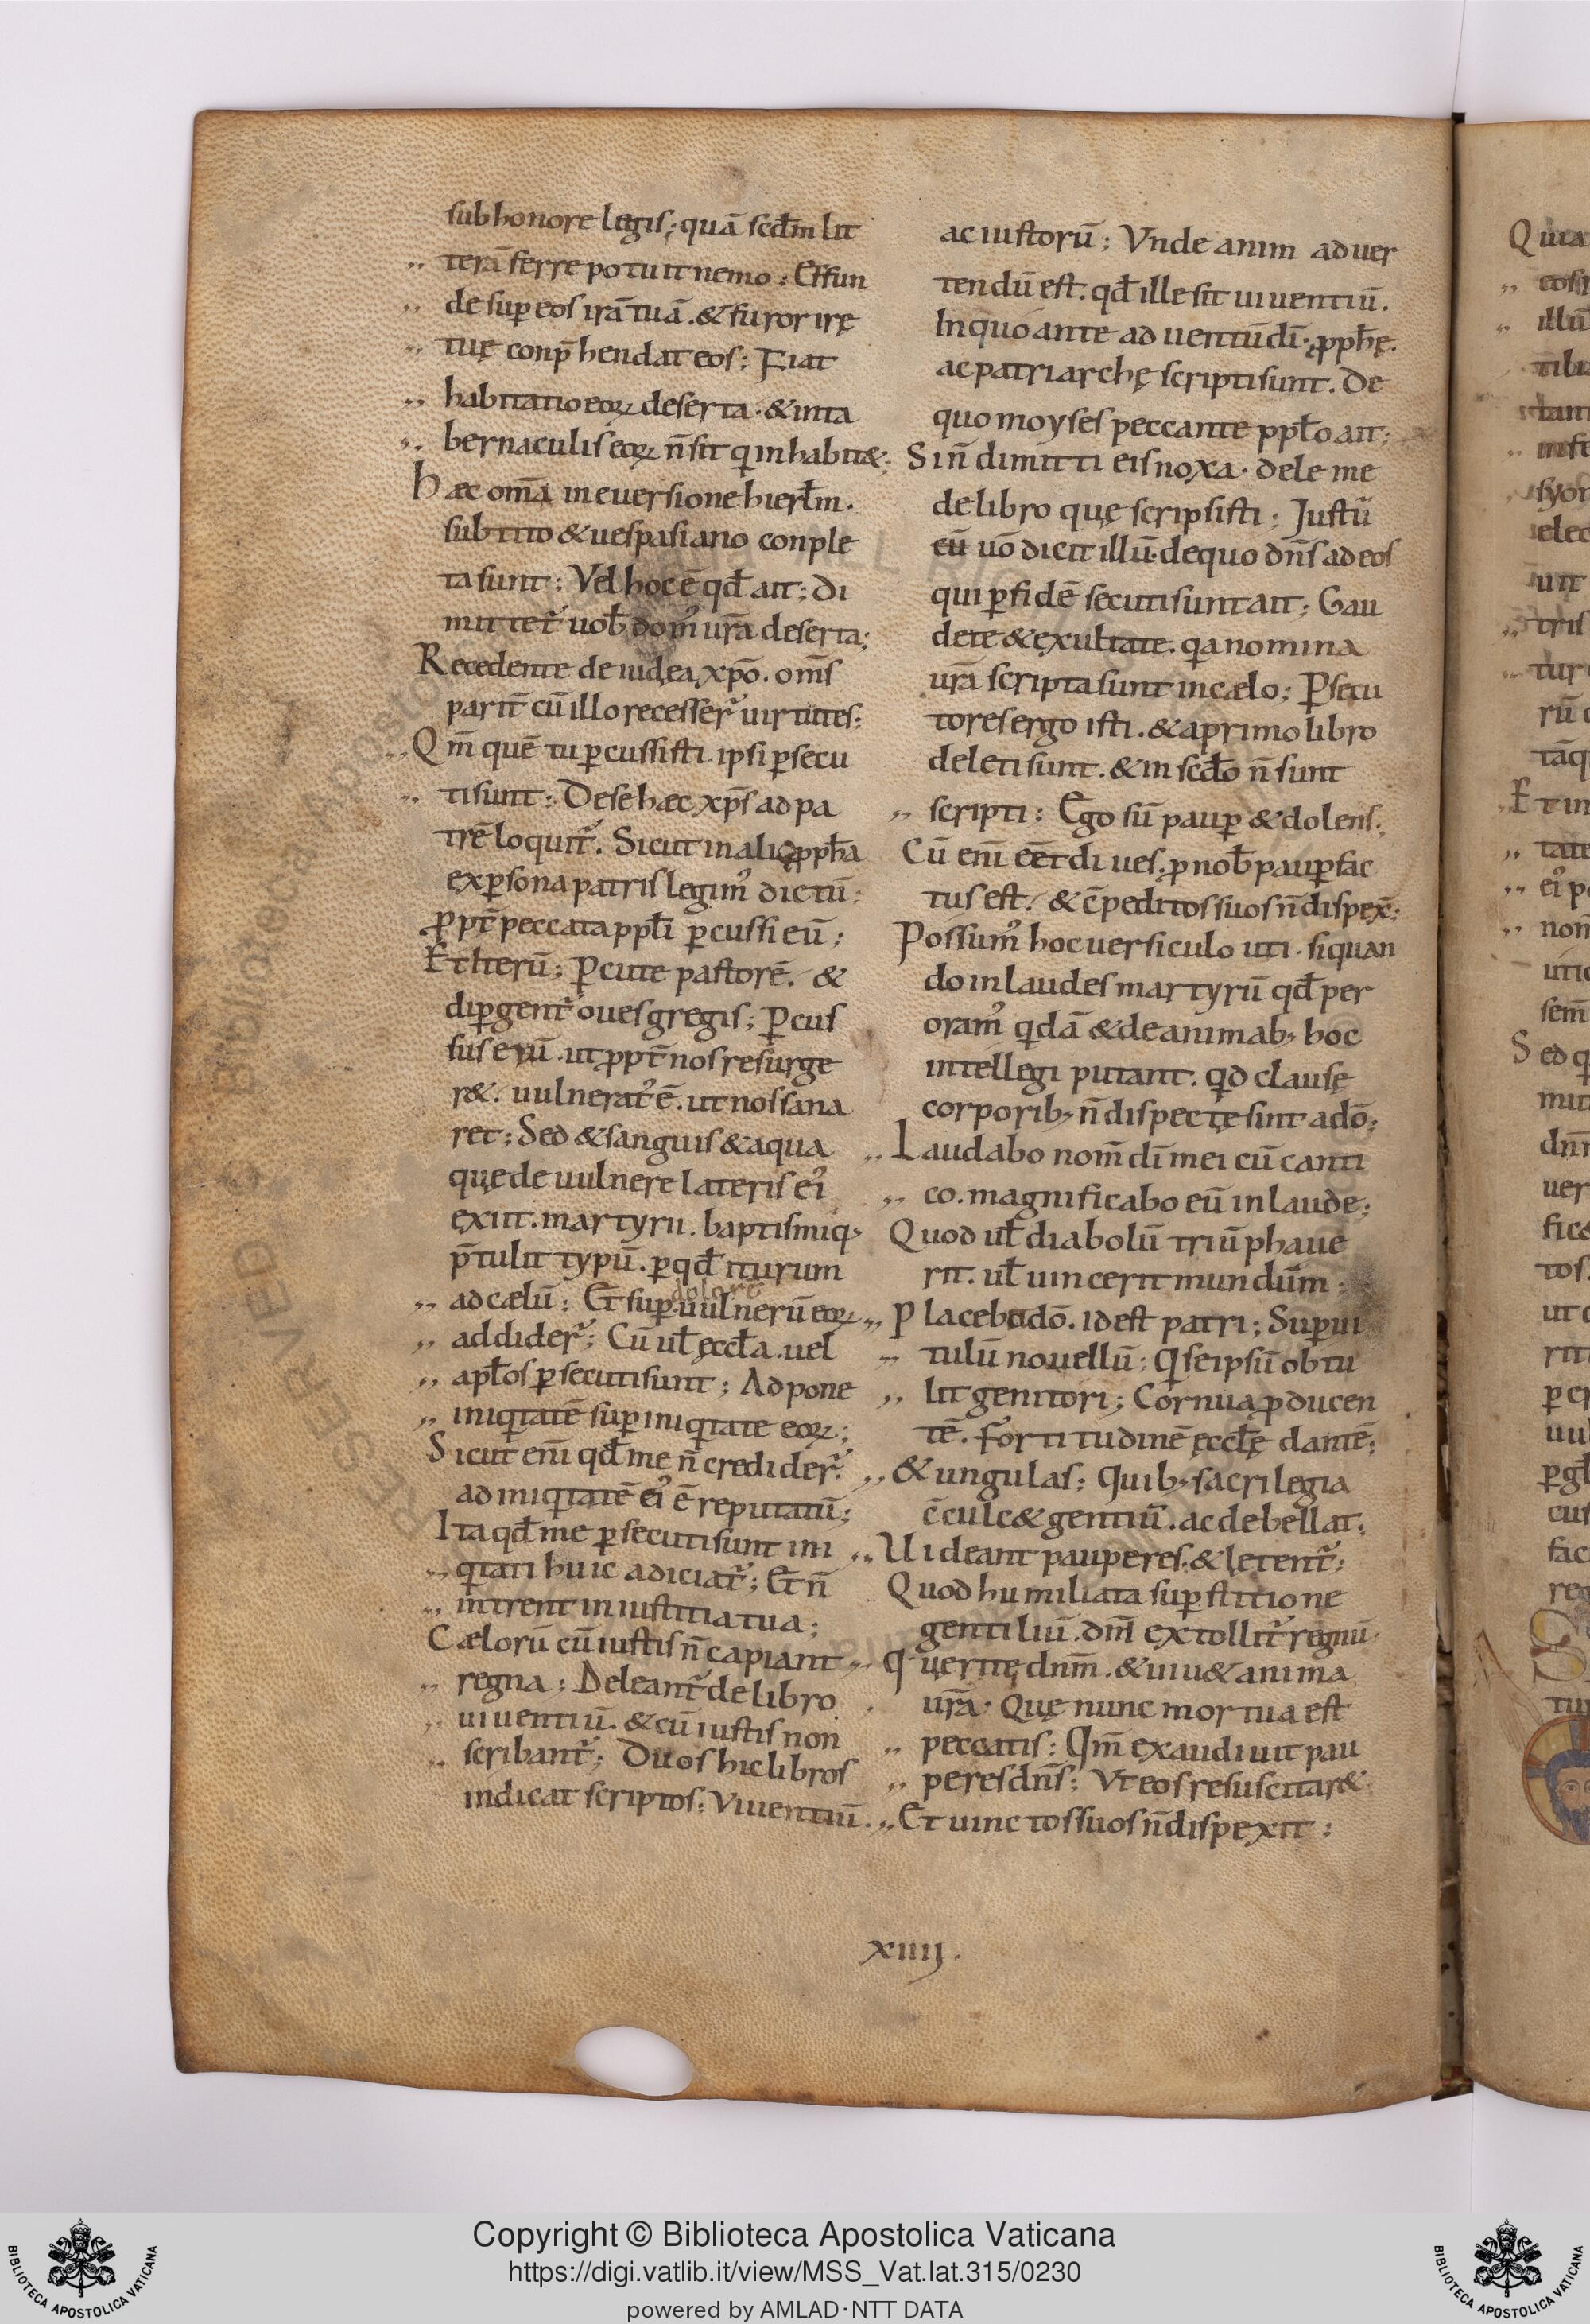 sub honore legis; quā scd̄m lit
terā ferre potuit nemo; Effun
de sup eos irā tuā. & furor irę
tuę conp̄hendat eos; Fiat
habitatio eoꝝ deserta. & in ta
bernaculis eoꝝ n̄ sit qi inhabit&;
Haec om̄a in euersione hierl̄m.
sub tito & uespasiano conple
ta sunt; Vel hoc ē qd̄ ait; Di
mittet᷑ uob̄ domꝰ ur̄a deserta;
Recedente de iudęa xp̄o. om̄s
parit̄ cū illo recesser᷑ uirtutes;
Qm̄ quē tu ꝑcussisti. ipsi ꝑsecu
ti sunt; De se haec xp̄s ad pa
trē loquit᷑. Sicut in alio ꝓph̄a
ex ꝑsona patris legimꝰ dictū;
ꝓpt̄ peccata ppl̄i ꝑcussi eū;
Et iterū; Ꝑcute pastorē. &
disꝑgent᷑ oues gregis; Ꝑcus
sus e  ū. ut ꝓpt̄ nos resurge
r&. uulneratꝰ ē. ut nos sana
ret; Sed & sanguis & aqua
quę de uulnere lateris eiꝰ
exiit. martyrii. baptismiq;
p̄tulit typū. ꝑ qd̄ iturum
dolorē
ad cælū; Et sup uulnerū eoꝝ
addider᷑; Cū ul̄ ęccl̄a. uel
apl̄os ꝑsecuti sunt; Adpone
iniqitatē sup iniqitate eoꝝ;
Sicut enī qd̄ me n̄ credider᷑.
ad iniqitatē eiꝰ ē reputatū;
Ita qd̄ me ꝑsecuti sunt ini
qitati huic adiciat᷑; Et n̄
intrent in iustitia tua;
Cælorū cū iustis n̄ capiant
regna; Deleant᷑ de libro
uiuentiū. & cū iustis non
scribant᷑; Duos hic libros
indicat scriptos; Viuentiū.
ac iustorū; Vnde anim aduer
tendū est. qd̄ ille sit uiuentiū.
In quo ante aduentū dī. ꝓph̄ę.
ac patriarchę scripti sunt. De
quo moyses peccante ppl̄o ait;
Si n̄ dimitti eis noxa. dele me
de libro quę scripsisti; Iustū
eū uō dicit illū. de quo dn̄s ad eos
qui ꝑ fidē secuti sunt ait; Gau
dete & exultate. qa nomina
ur̄a scripta sunt in cælo; Ꝑsecu
tores ergo isti. & a primo libro
deleti sunt. & in scd̄o n̄ sunt
scripti; Ego sū paup & dolens;
Cū enī eēt diues. ꝓ nob̄ paup fac
tus est. & c̄peditos suos n̄ dispex̄;
Possumꝰ hoc uersiculo uti. siquan
do in laudes martyrū qd̄ per
oramꝰ qidā & de animab; hoc
intellegi putant. qd clausę
corporib; n̄ dispectę sint a dō;
Laudabo nom̄ dī mei cū canti
co. magnificabo eū in laude;
Quod ul̄ diabolū triūphaue
rit. ul̄ uincerit mundūm;
Placebo dō. id est patri; Sup ui
tulū nouellū; Qi se ipsū obtu
lit genitori; Cornua ꝓducen
tē. Fortitudinē ęccl̄ę dantē;
& ungulas; Quib; sacrilegia
c̄culc& gentiū. ac debellat;
Uideant pauperes. & lętent᷑;
Quod humiliata supstitione
gentiliū. dn̄i extollit᷑ regnū.
Quęrite dnm̄. & uiu& anima
ur̄a. Quę nunc mortua est
peccatis; Qm̄ exaudiuit pau
peres dn̄s; Vt eos resuscitar&
Et uinctos suos n̄ dispexit;
xiiij.
Copyright © Biblioteca Apostolica Vaticana
https://digi.vatlib.it/view/MSS_Vat.lat.315/0230
powered by AMLAD·NTT DATA
BIBLIOTECA APOSTOLICA VATICANA
BIBLIOTECA APOSTOLICA VATICANA